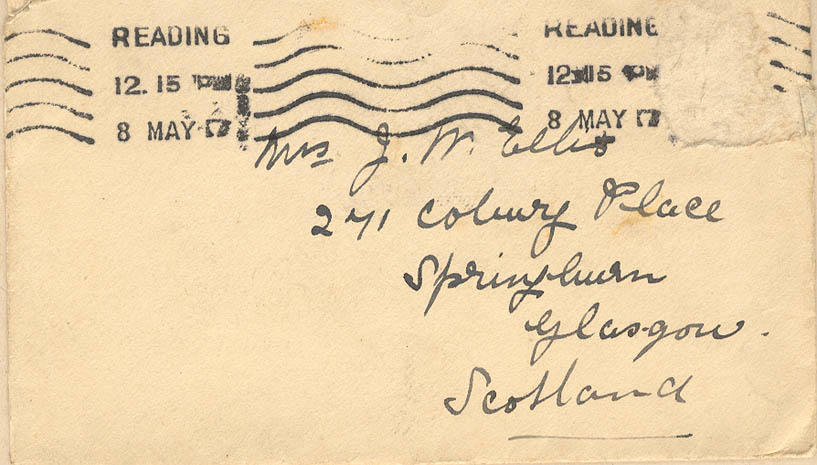 READING READING
12.15 PM 12.15 PM
8 MAY 17 8 MAY 17
Mrs J. W. Ellis
271 Coburg Place
Springburn
Glasgow.
Scotland